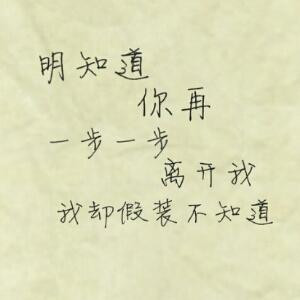 明知道
你再
一步一步
离开我
我却假装不知道